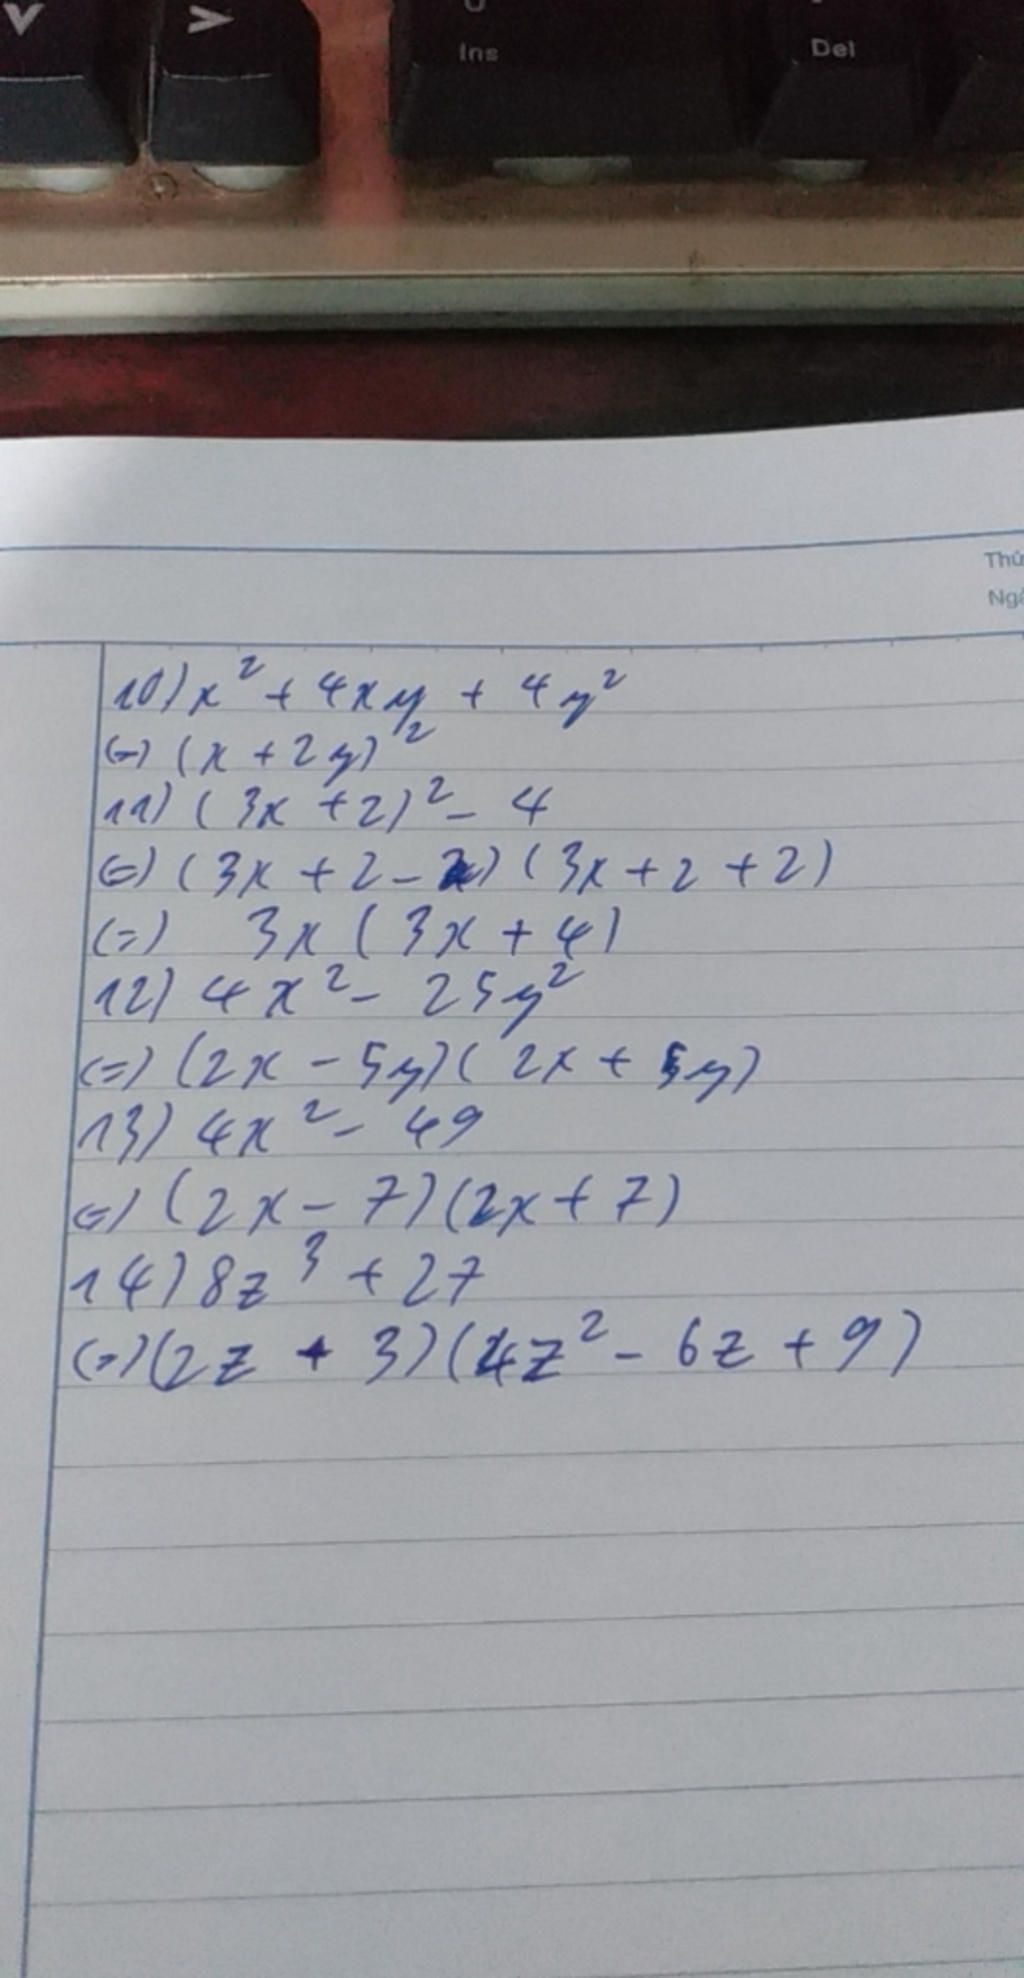 Ins
Del
Thứ
Ngà
10) x² + 4xy + 4y²
(=) (x + 2y)²
11) (3x + 2)² - 4
(=) (3x + 2 - 2) (3x + 2 + 2)
(=) 3x (3x + 4)
12) 4x² - 25y²
(=) (2x - 5y) (2x + 5y)
13) 4x² - 49
(=) (2x - 7) (2x + 7)
14) 8z³ + 27
(=) (2z + 3) (4z² - 6z + 9)